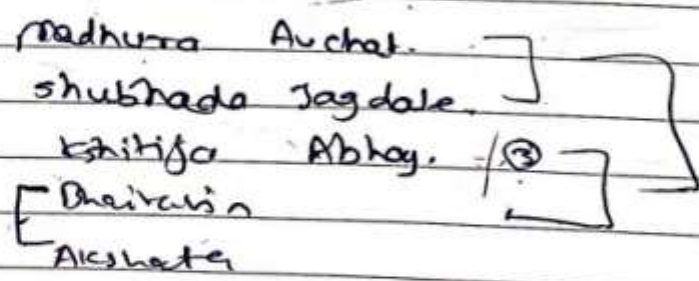 Madhura Auchat.
Shubhada Jagdale.
Kshitija Abhay. / ③
Bhairavin
Akshata